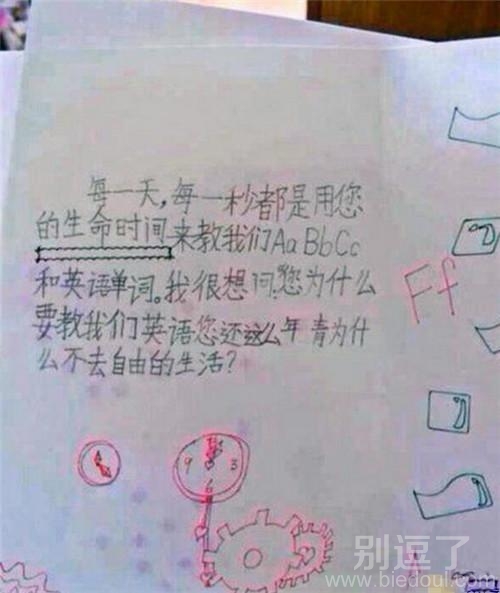 每一天,每一秒都是用您
的生命时间来教我们AaBbCc
和英语单词。我很想问,您为什么
要教我们英语您还这么年青为什
么不去自由的生活?
Ff
9 3
6
别逗了
www.biedoul.com